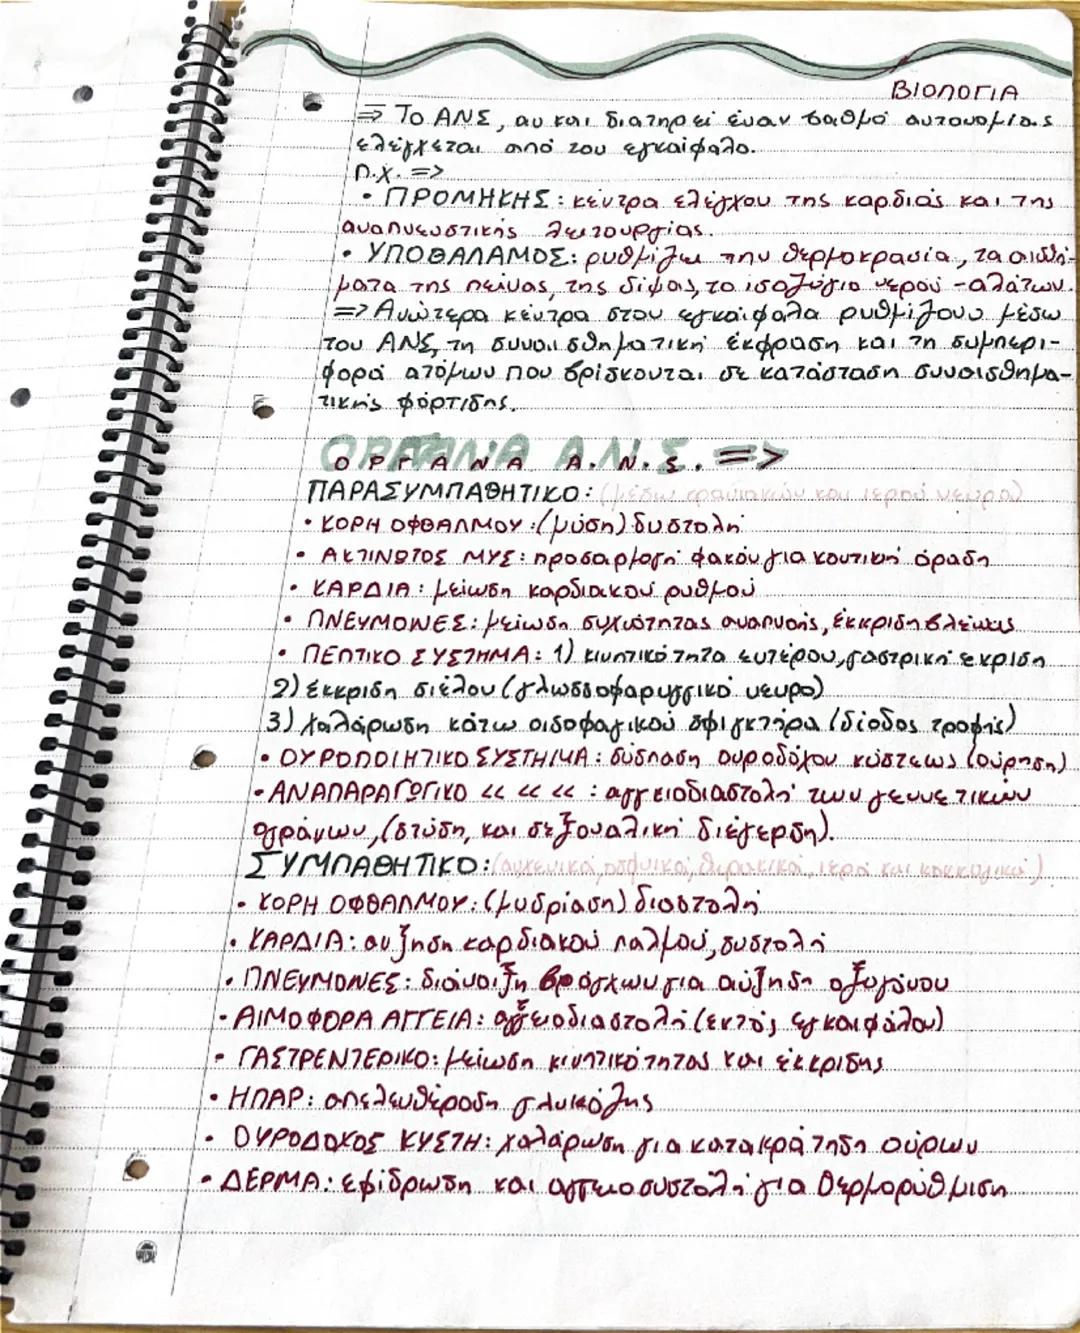 ΒΙΟΛΟΓΙΑ
=> Το ΑΝΣ, αν και διατηρεί έναν βαθμό αυτονομίας
ελέγχεται από τον εγκαίφαλο.
π.χ. =>
• ΠΡΟΜΗΚΗΣ: κέντρα ελέγχου της καρδιάς και της
αναπνευστικής λειτουργίας.
• ΥΠΟΘΑΛΑΜΟΣ: ρυθμίζει την θερμοκρασία, τα αισθή-
ματα της πείνας, της δίψας, το ισοζύγιο νερού - αλάτων.
=> Ανώτερα κέντρα στον εγκαίφαλο ρυθμίζουν μέσω
του ΑΝΣ, τη συναισθηματική έκφραση και τη συμπερι-
φορά ατόμων που βρίσκονται σε κατάσταση συναισθημα-
τικής φόρτισης.
ΟΡΓΑΝΑ Α.Ν.Σ. =>
ΠΑΡΑΣΥΜΠΑΘΗΤΙΚΟ: (μέσω κρανιακών και ιερού νεύρου)
• ΚΟΡΗ ΟΦΘΑΛΜΟΥ: (μύση) συστολή
• ΑΚΤΙΝΩΤΟΣ ΜΥΣ: προσαρμογή φακού για κοντινή όραση
• ΚΑΡΔΙΑ: μείωση καρδιακού ρυθμού
• ΠΝΕΥΜΟΝΕΣ: μείωση συχνότητας αναπνοής, έκκριση βλέννας
• ΠΕΠΤΙΚΟ ΣΥΣΤΗΜΑ: 1) κινητικότητα εντέρου, γαστρική έκριση
2) έκκριση σιέλου (γλωσσοφαρυγγικό νευρο)
3) χαλάρωση κάτω οισοφαγικού σφιγκτήρα (δίοδος τροφής)
• ΟΥΡΟΠΟΙΗΤΙΚΟ ΣΥΣΤΗΜΑ: σύσπαση ουροδόχου κύστεως (ούρηση)
• ΑΝΑΠΑΡΑΓΩΓΙΚΟ << << <<: αγγειοδιαστολή των γεννετικών
οργάνων, (στύση, και σεξουαλική διέγερση).
ΣΥΜΠΑΘΗΤΙΚΟ: (αυχενικά, οσφυικά, θωρακικά, ιερά και κοκκυγικά)
• ΚΟΡΗ ΟΦΘΑΛΜΟΥ: (μυδρίαση) διαστολή
• ΚΑΡΔΙΑ: αυξηση καρδιακού παλμού, συστολή
• ΠΝΕΥΜΟΝΕΣ: διάνοιξη βρόγχων για αύξηση οξυγόνου
• ΑΙΜΟΦΟΡΑ ΑΓΓΕΙΑ: αγγειοδιαστολή (εκτός εγκαιφάλου)
• ΓΑΣΤΡΕΝΤΕΡΙΚΟ: μείωση κινητικότητας και έκκρισης
• ΗΠΑΡ: απελευθέρωση γλυκόζης
• ΟΥΡΟΔΟΧΟΣ ΚΥΣΤΗ: χαλάρωση για κατακράτηση ούρων
• ΔΕΡΜΑ: εφίδρωση και αγγειοσυστολή για θερμορύθμιση